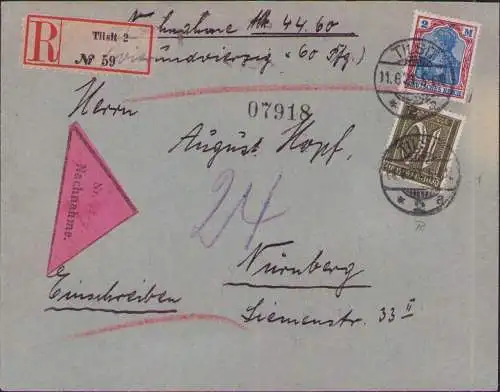 Nachnahme Mk 44.60
R Tilsit 2
№ 59
vierundvierzig 60 Pfg.)
2 M
TILSIT
11.6.
Herrn
07918
August Hopf,
Nachnahme.
24
Nürnberg
Einschreiben
Siemenstr. 33 II
a